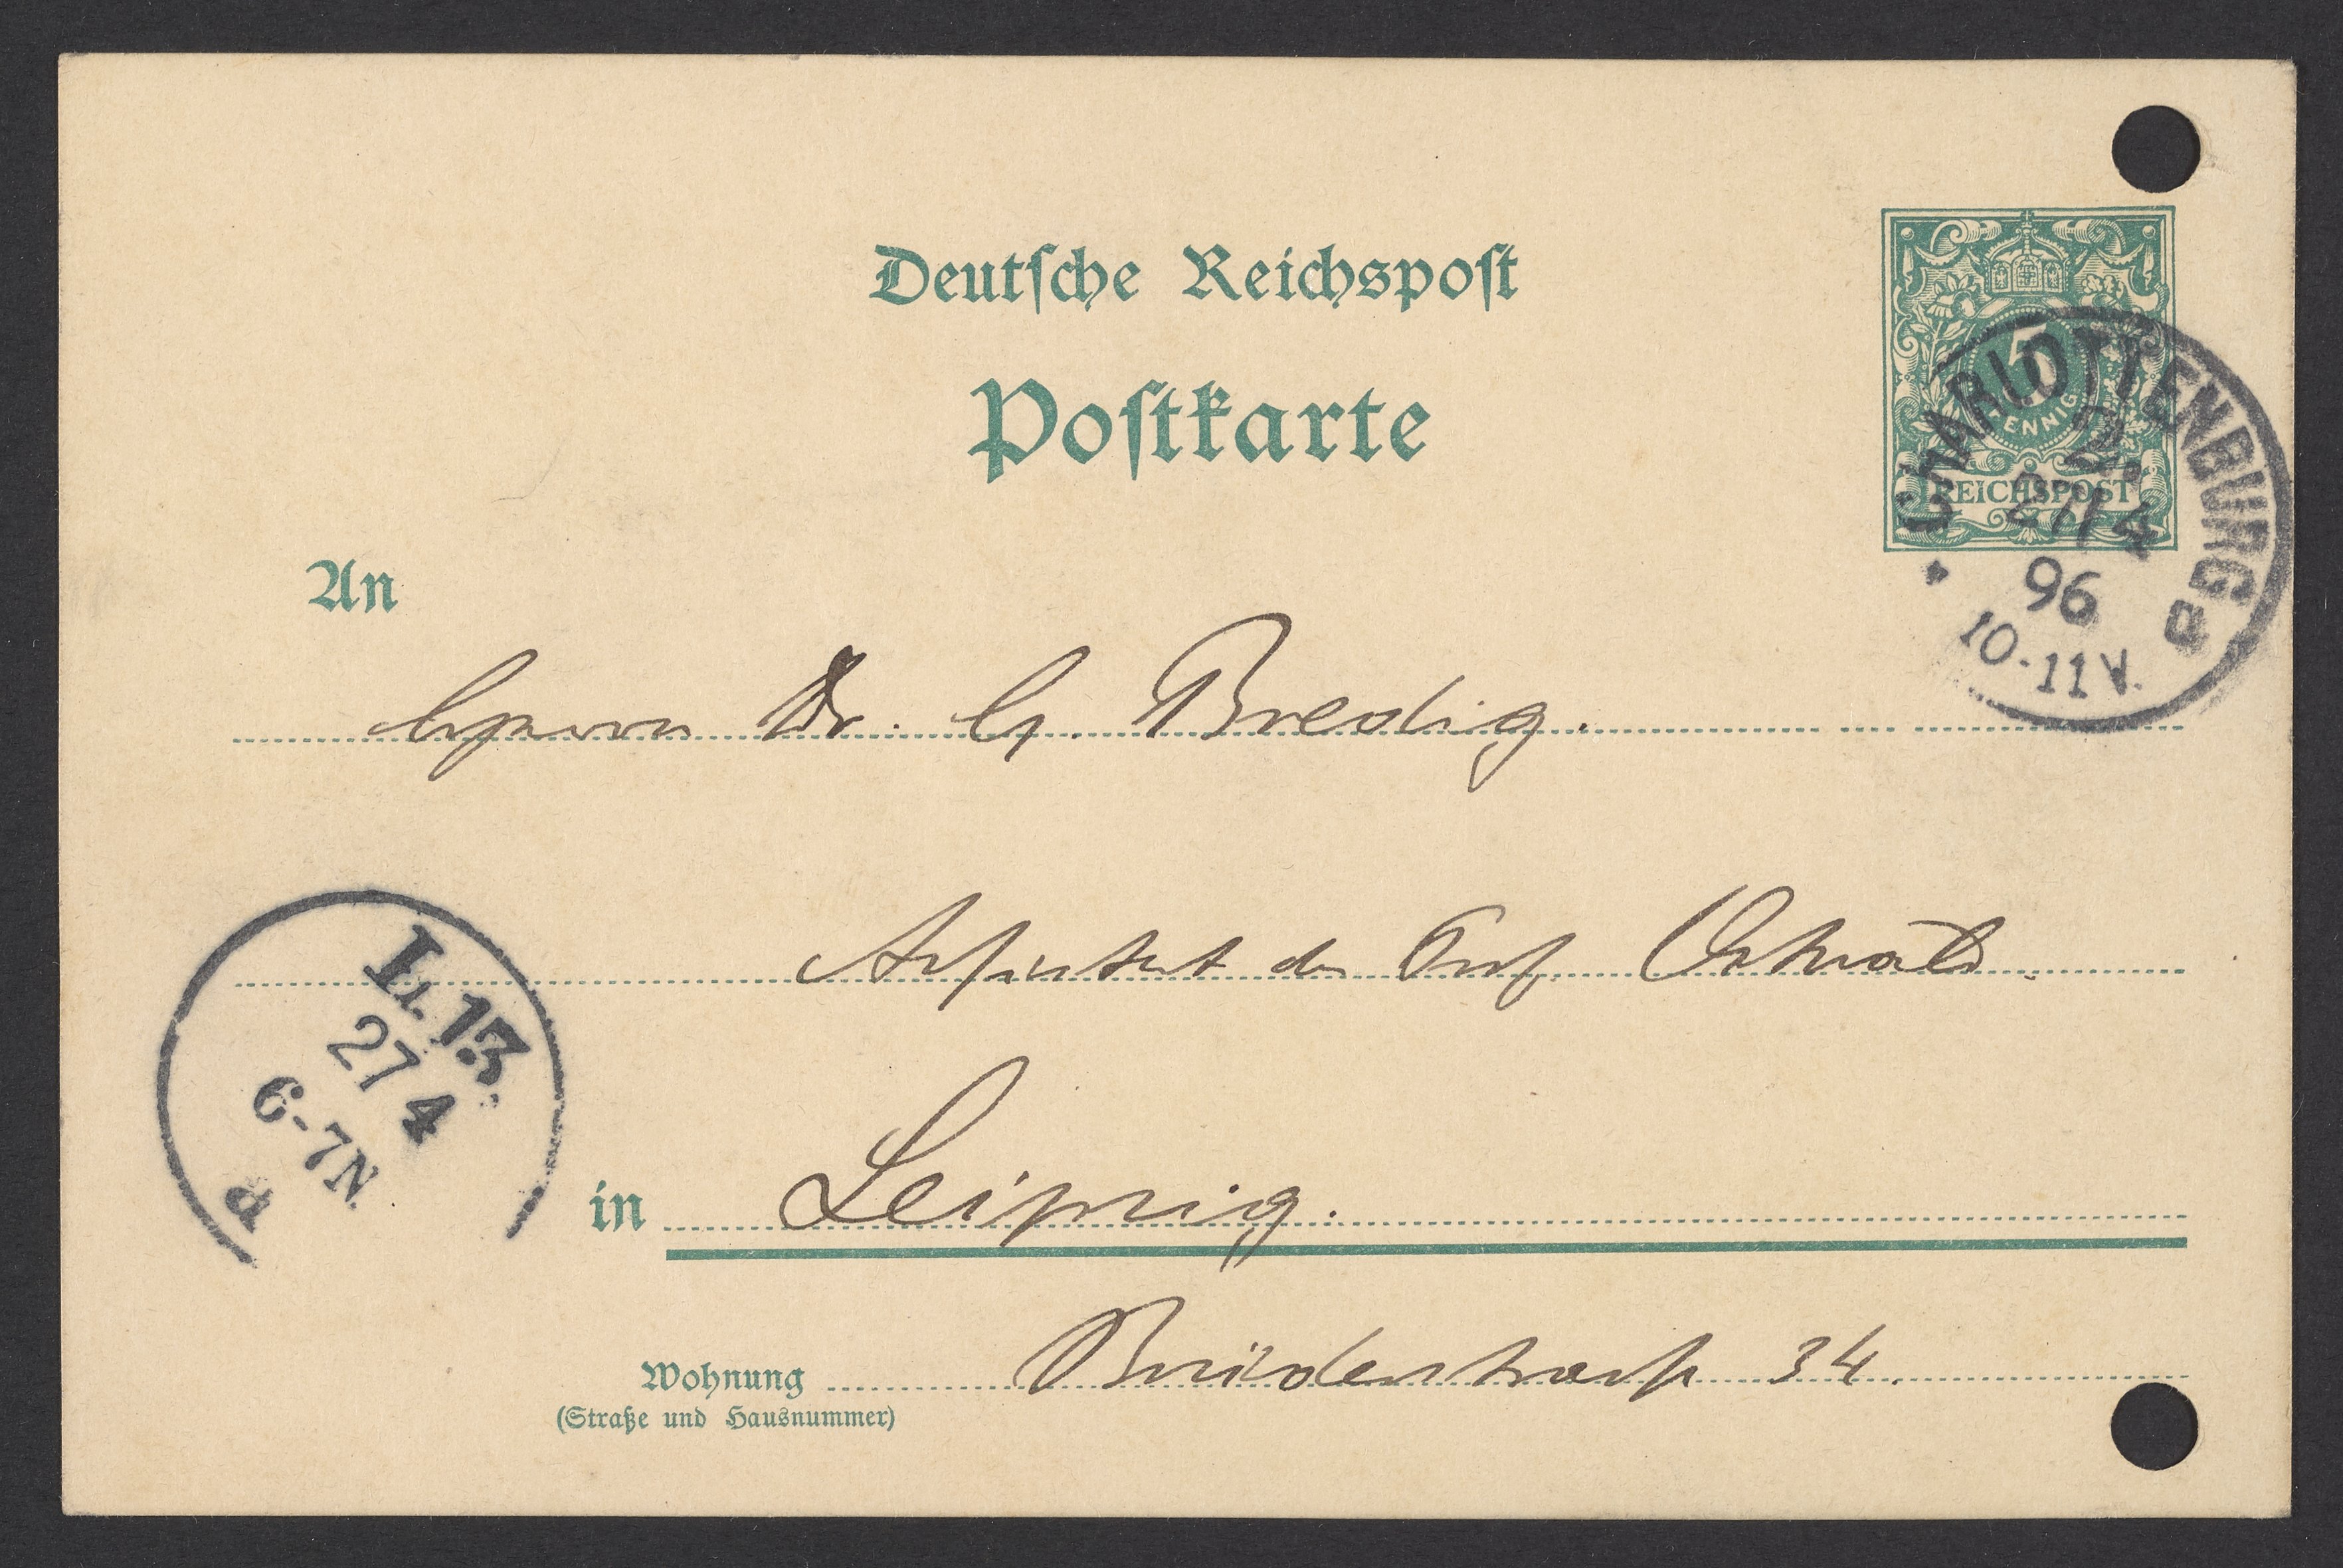 Deutſche Reichspoſt
Poſtkarte
5
PFENNIG
REICHSPOST
CHARLOTTENBURG
2.
27/4
96
10-11V.
a
An
Herrn Dr. G. Bredig.
Assistent des Prof. Ostwald.
L. 13.
27 4
6-7N.
d
in Leipzig.
Wohnung Brüderstrasse 34.
(Straße und Hausnummer)